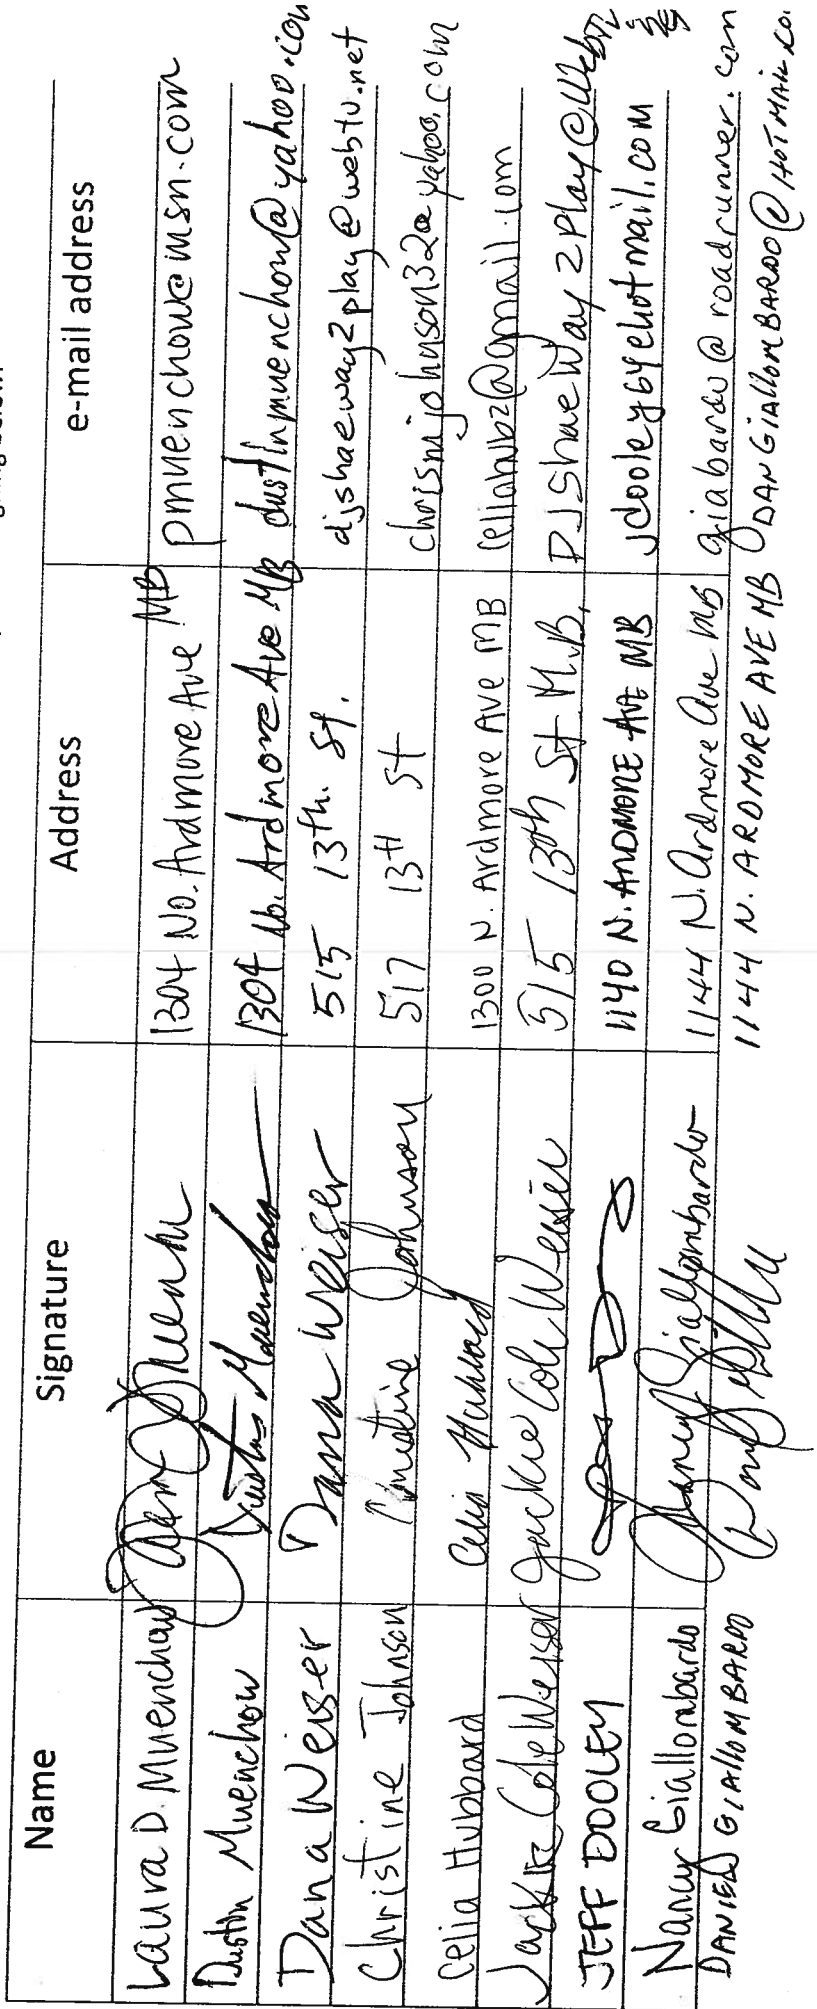 Name Signature Address e-mail address
Laura D. Muenchow 1304 No. Ardmore Ave MB pmuenchow@msn.com
Dustin Muenchow Dustin Muenchow 1304 No. Ardmore Ave MB dustinmuenchow@yahoo.com
Dana Weiser Dana Weiser 515 13th. St. djshaeway2play@webtv.net
Christine Johnson Christine Johnson 517 13th St chrismjohnson32@yahoo.com
Celia Hubbard Celia Hubbard 1300 N. Ardmore Ave MB celiahubz@gmail.com
Jackie Cole Weiser Jackie Cole Weiser 515 13th St. M.B. DJShaeWay2Play@Webtv
JEFF DOOLEY 1140 N. ARDMORE AVE MB jdooley64@hotmail.com
Nancy Giallombardo Nancy Giallombardo 1144 N. Ardmore Ave MB giabardo@roadrunner.com
DANIEL GIALLOMBARDO 1144 N. ARDMORE AVE MB DANGIALLOMBARDO@HOTMAIL.CO